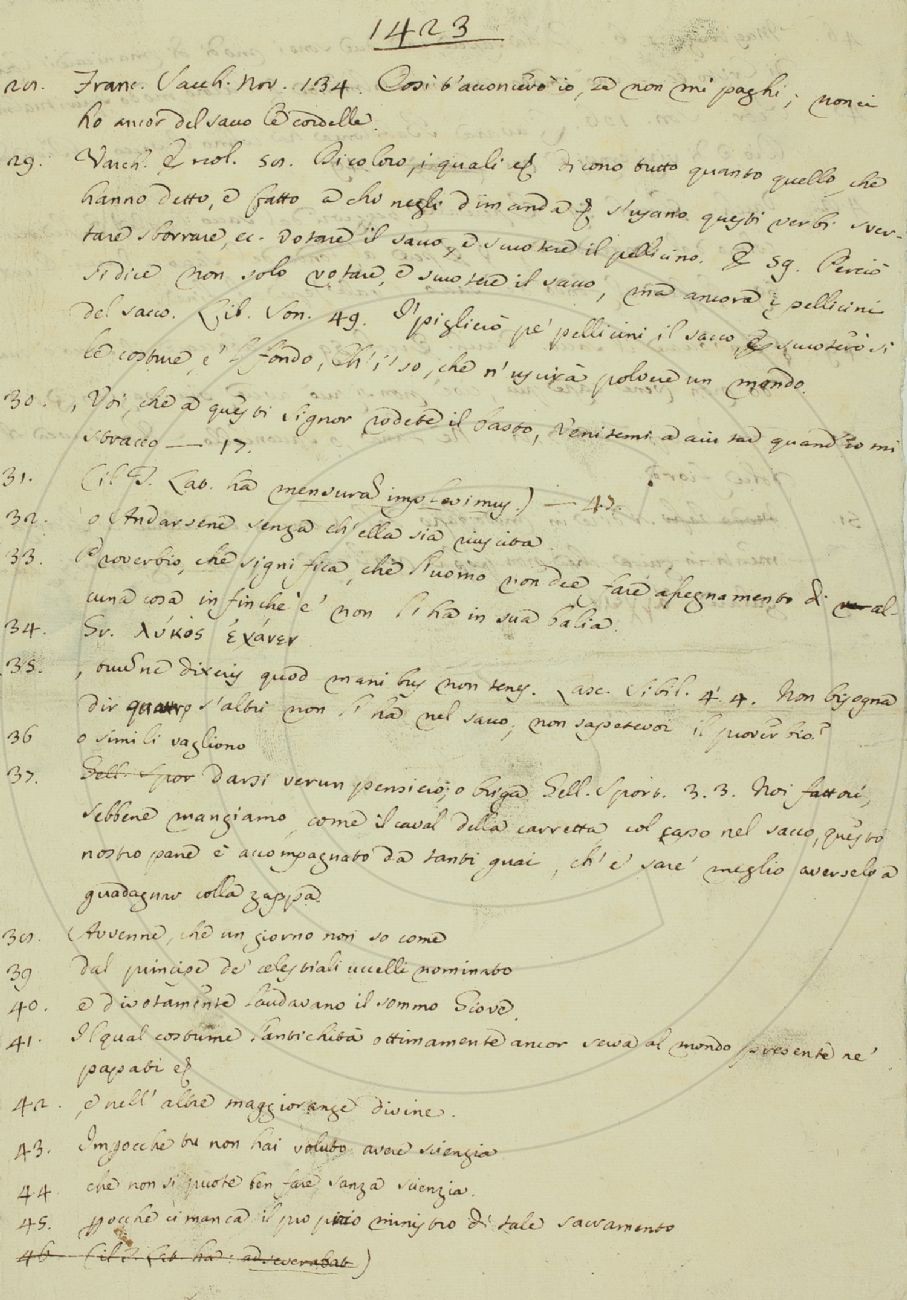 1423
28. Franc. Sacch. Nov. 134. Così t'acconcerò io, se non mi paghi; non ci
ho ancor del sacco le cordelle.
29. Varch. Ercol. 58. Dicolo, i quali dicono tutto quanto quello che
hanno detto, e fatto a chi negli dimanda si usano questi verbi sver-
tare sborrare, ec. votare il sacco, e scuotere il pellicino. E 59. Perciò
si dice non solo votare, e scuotere il sacco, ma ancora i pellicini
del sacco. Lib. Son. 49. I' piglierò pe' pellicini il sacco, E scuoterò sì
le costure, e 'l fondo, Ch'i' so, che n'uscirà polvere un mondo.
30. , Voi, che a questi signor rodete il basto, Venitemi a aiutar quand'io mi
straccio — 17.
31. (il T. Lat. ha mensurã implevimus) — 47.
32. o Andarsene senza ch'ella sia riuscita
33. Proverbio, che significa, che l'uomo non dee fare assegnamento di al-
cuna cosa infinche e' non l'ha in sua balìa.
34. Gr. λύκος ἔχανεν
35. , ne dixeris quod manibus non tenes. Lasc. Sibil. 4. 4. Non bisogna
dir s'altri non l'ha nel sacco, non sapetevoi il proverbio?
36 o simili vagliono
37. Gell. Spor darsi verun pensiero, o briga Gell. Sport. 3. 3. Noi fattori,
sebbene mangiamo, come il caval della carretta col capo nel sacco, questo
nostro pane è accompagnato da tanti guai, ch'e' sare' meglio averselo a
guadagnar colla zappa.
38. Avvenne, che un giorno non so come
39 dal principe de' celestiali uccelli nominato
40. e divotamente laudavano il sommo Giove.
41. Il qual costume l'antichità ottimamente ancor serva al mondo presente ne'
papati
42. , e nell'altre maggioranze divine.
43. Impocche tu non hai voluto avere scienzia
44 che non si puote ben fare sanza scienzia.
45. ppocche ci manca il proprio ministro di tale sacramento
46 (il T. Lat. ha: adseverabat)